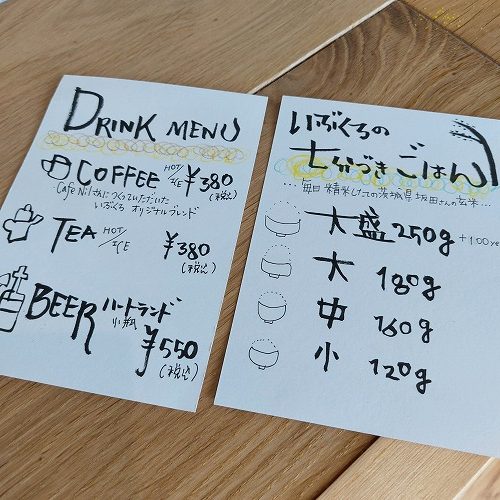 DRINK MENU
COFFEE HOT/ICE ¥380
(税込)
Cafe Nilさんにつくっていただいた
いぶくろ オリジナルブレンド
TEA HOT/ICE ¥380
(税込)
BEER ハートランド
小瓶
¥550
(税込)
いぶくろの
七分づきごはん
…毎日精米したての茨城県坂田さんの玄米…
大盛 250g +100ye
大 180g
中 160g
小 120g